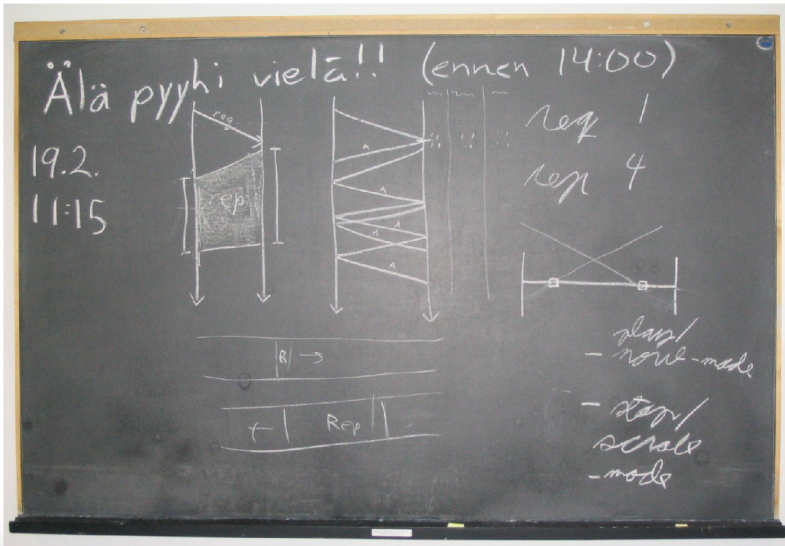 Älä pyyhi vielä!! (ennen 14:00)
19.2.
11:15
req
rep
A
A
A
A
A
req 1
rep 4
R →
← Rep
- play/
move-mode
- stop/
scroll
-mode